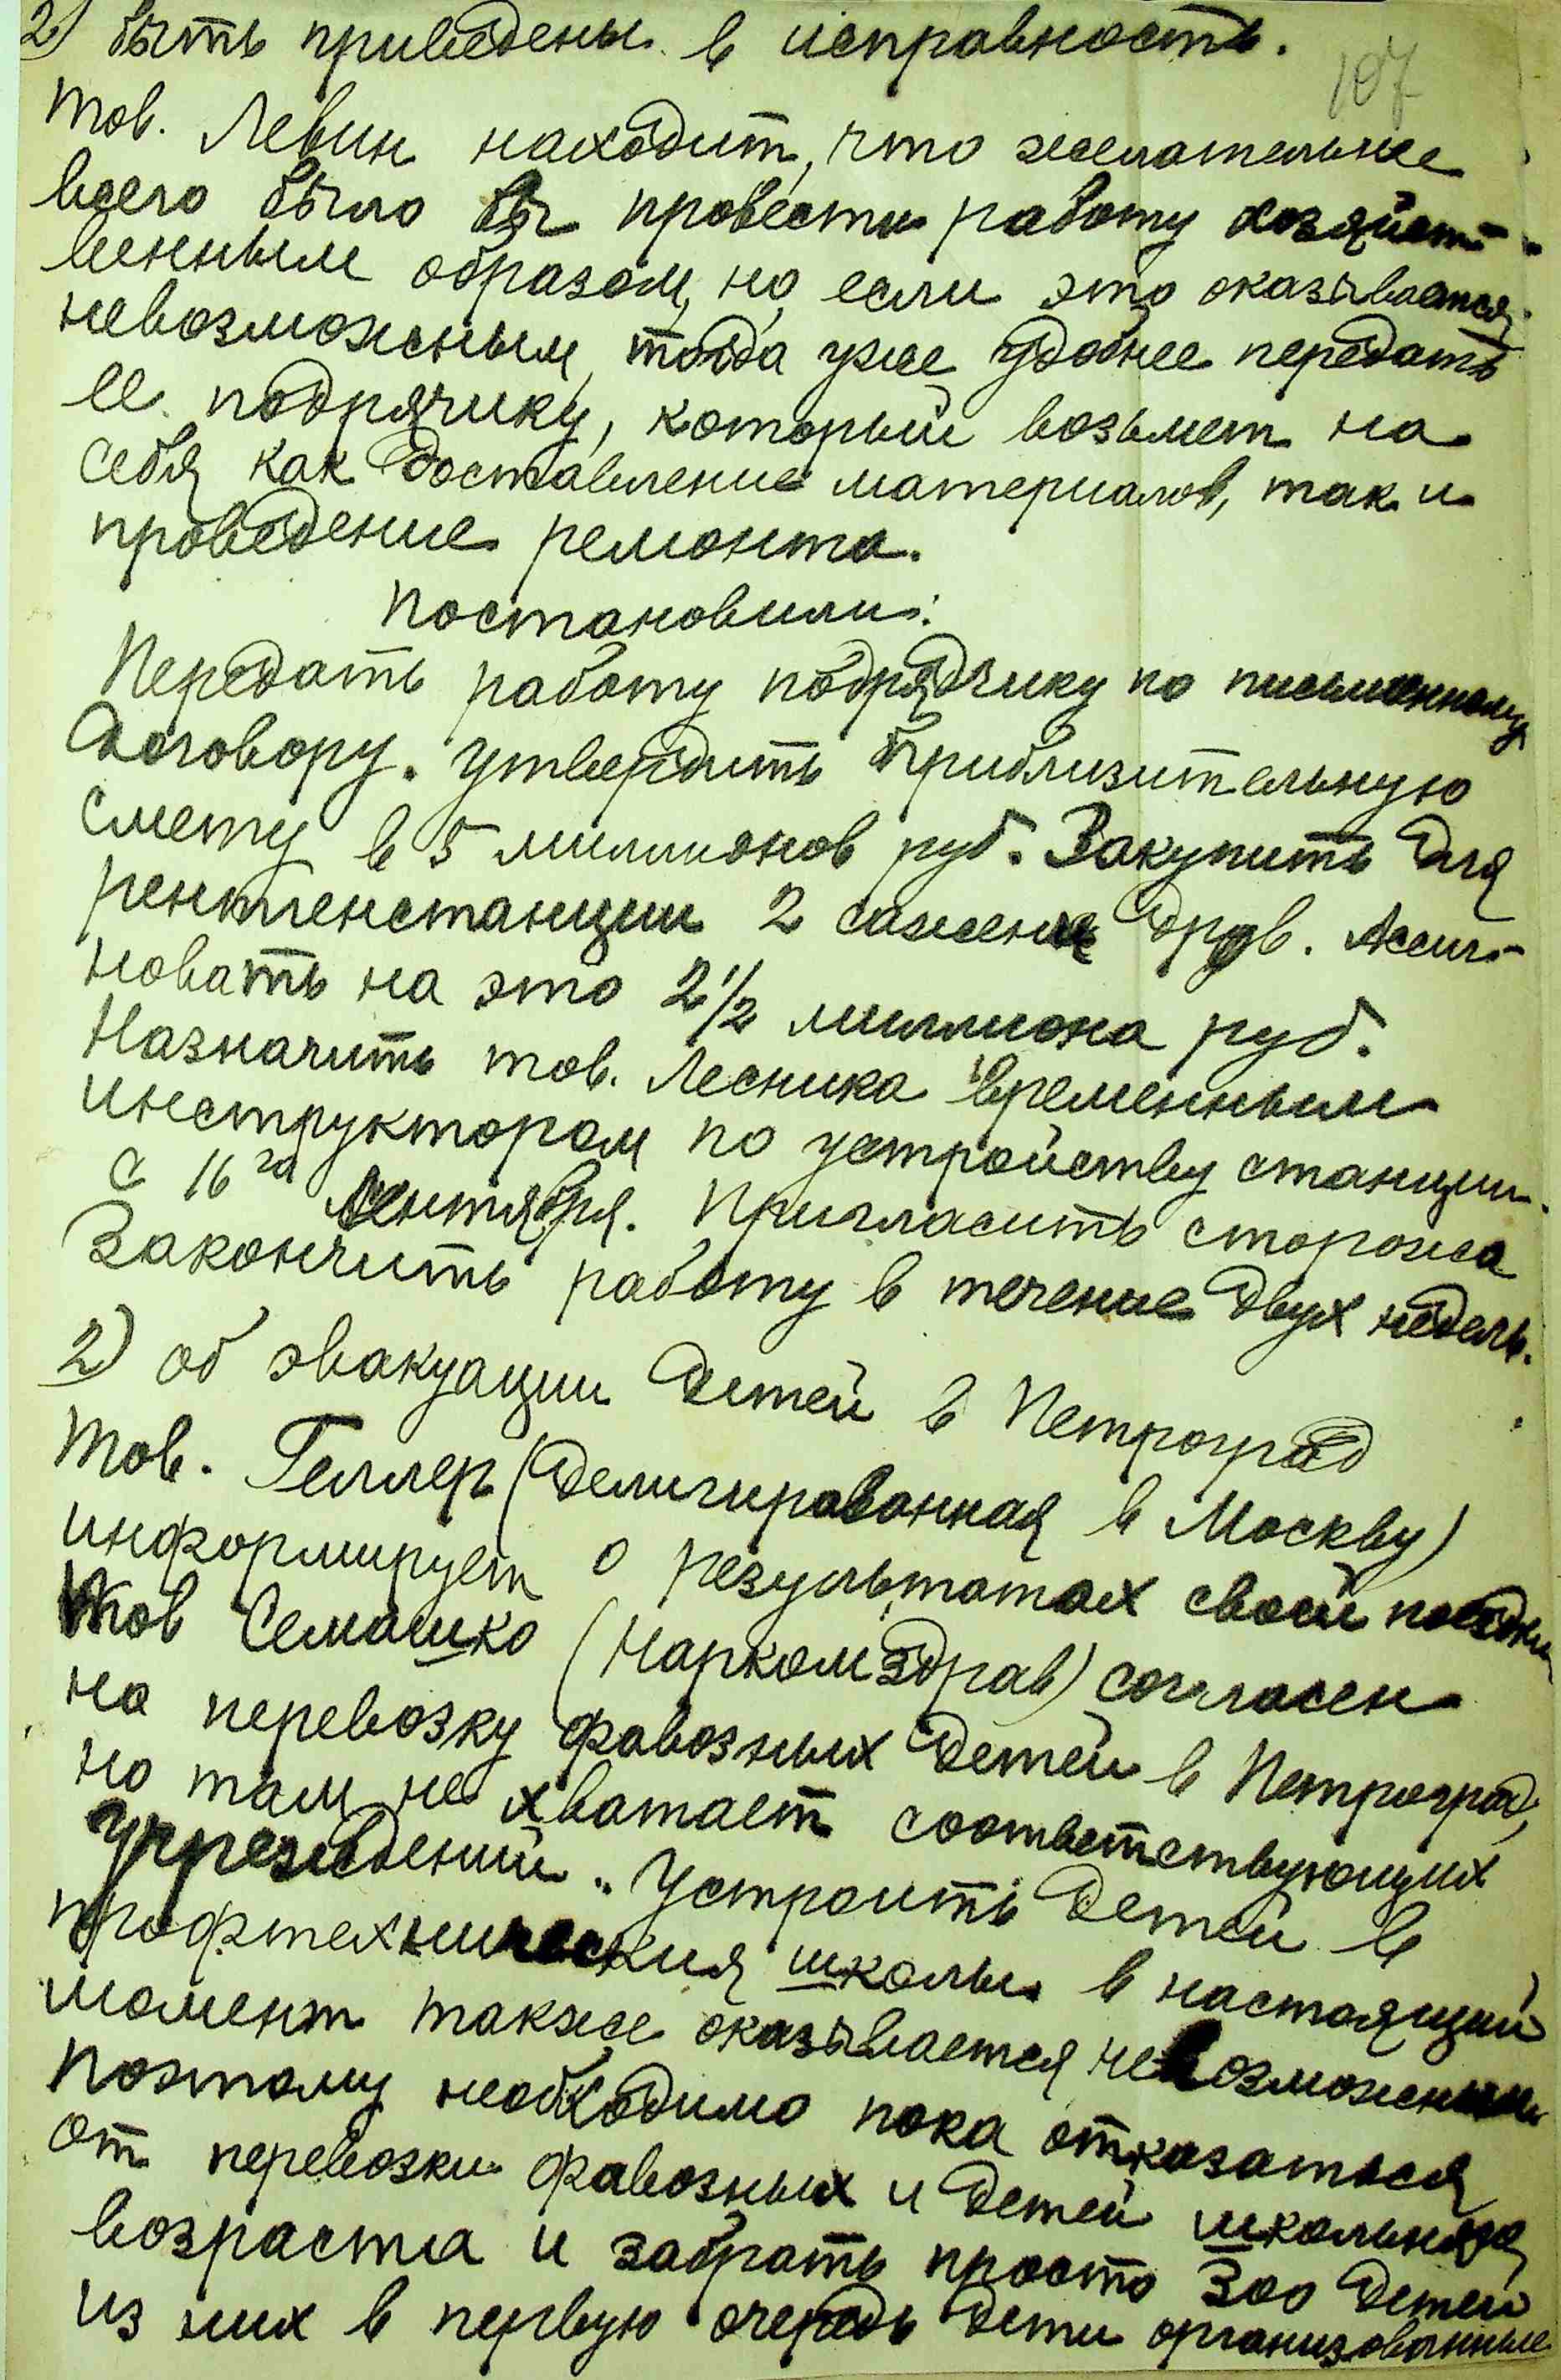 2) быть приведены в исправность.
107
тов. Левин находит, что желательнее
всего было бы провести работу хозяйст-
венным образом, но если это оказывается
невозможным, тогда уже удобнее передать
ее подрячику, который возьмет на
себя как доставление материалов, так и
проведение ремонта.
Постановили:
Передать работу подрядчику по письменному
договору. Утвердить приблизительную
смету в 5 миллионов руб. Закупить для
рентгенстанции 2 сажени дров. Ассиг-
новать на это 2 1/2 миллиона руб.
Назначить тов. Лесника временным
инструктором по устройству станции
с 16го сентября. Пригласить сторожа
Закончить работу в течение двух недель.
2) об эвакуации детей в Петроград
Тов. Геллер (делигированная в Москву)
информирует о результатах своей поездки
Тов Семашко (Наркомздрав) согласен
на перевозку фавозных детей в Петроград,
но там не хватает соответствующих
учреждений. Устроить детей в
профтехническия школы в настоящий
момент также оказывается невозможным
Поэтому необходимо пока отказаться
от перевозки фавозных и детей школьного
возраста и забрать просто 300 детей
из них в первую очередь дети организованные